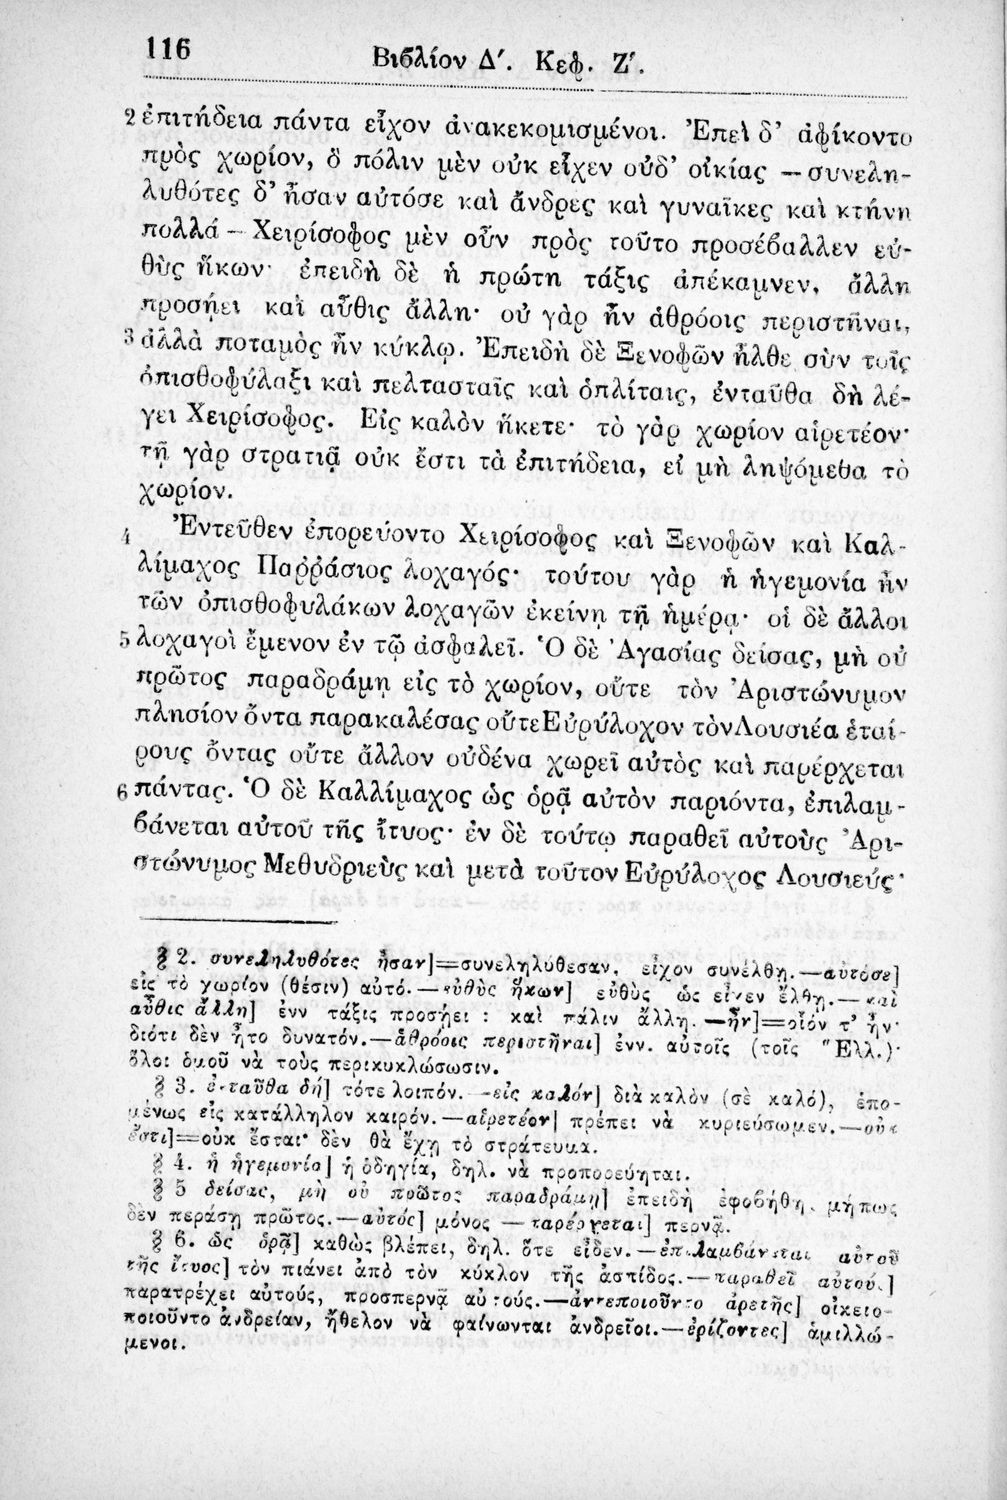 116
Βιβλίον Δ΄. Κεφ. Ζ΄.
2 ἐπιτήδεια πάντα εἶχον ἀνακεκομισμένοι. Ἐπεὶ δ' ἀφίκοντο
πρὸς χωρίον, ὃ πόλιν μὲν οὐκ εἶχεν οὐδ' οἰκίας — συνελη-
λυθότες δ' ἦσαν αὐτόσε καὶ ἄνδρες καὶ γυναῖκες καὶ κτήνη
πολλά — Χειρίσοφος μὲν οὖν πρὸς τοῦτο προσέβαλλεν εὐ-
θὺς ἥκων· ἐπειδὴ δὲ ἡ πρώτη τάξις ἀπέκαμνεν, ἄλλη
προσῄει καὶ αὖθις ἄλλη· οὐ γὰρ ἦν ἁθρόοις περιστῆναι,
3 ἀλλὰ ποταμὸς ἦν κύκλῳ. Ἐπειδὴ δὲ Ξενοφῶν ἦλθε σὺν τοῖς
ὀπισθοφύλαξι καὶ πελτασταῖς καὶ ὁπλίταις, ἐνταῦθα δὴ λέ-
γει Χειρίσοφος. Εἰς καλὸν ἥκετε· τὸ γὰρ χωρίον αἱρετέον·
τῇ γὰρ στρατιᾷ οὐκ ἔστι τὰ ἐπιτήδεια, εἰ μὴ ληψόμεθα τὸ
χωρίον.
4 Ἐντεῦθεν ἐπορεύοντο Χειρίσοφος καὶ Ξενοφῶν καὶ Καλ-
λίμαχος Παῤῥάσιος λοχαγός· τούτου γὰρ ἡ ἡγεμονία ἦν
τῶν ὀπισθοφυλάκων λοχαγῶν ἐκείνῃ τῇ ἡμέρᾳ· οἱ δὲ ἄλλοι
5 λοχαγοὶ ἔμενον ἐν τῷ ἀσφαλεῖ. Ὁ δὲ Ἀγασίας δείσας, μὴ οὐ
πρῶτος παραδράμῃ εἰς τὸ χωρίον, οὔτε τὸν Ἀριστώνυμον
πλησίον ὄντα παρακαλέσας οὔτε Εὐρύλοχον τὸν Λουσιέα ἑταί-
ρους ὄντας οὔτε ἄλλον οὐδένα χωρεῖ αὐτὸς καὶ παρέρχεται
6 πάντας. Ὁ δὲ Καλλίμαχος ὡς ὁρᾷ αὐτὸν παριόντα, ἐπιλαμ-
βάνεται αὐτοῦ τῆς ἴτυος· ἐν δὲ τούτῳ παραθεῖ αὐτοὺς Ἀρι-
στώνυμος Μεθυδριεὺς καὶ μετὰ τοῦτον Εὐρύλοχος Λουσιεύς·
§ 2. συνεληλυθότες ἦσαν]=συνεληλύθεσαν, εἶχον συνέλθῃ.—αὐτόσε]
εἰς τὸ χωρίον (θέσιν) αὐτό.—εὐθὺς ἥκων] εὐθὺς ὡς εἶχεν ἔλθῃ.—καὶ
αὖθις ἄλλη] ἐνν τάξις προσῄει : καὶ πάλιν ἄλλη.—ἦν]=οἷόν τ' ἦν·
διότι δὲν ἦτο δυνατόν.—ἁθρόοις περιστῆναι] ἐνν. αὐτοῖς (τοῖς Ἕλλ.)·
ὅλοι ὁμοῦ νὰ τοὺς περικυκλώσωσιν.
§ 3. ἐνταῦθα δή] τότε λοιπόν.—εἰς καλόν] διὰ καλὸν (σὲ καλό), ἑπο-
μένως εἰς κατάλληλον καιρόν.—αἱρετέον] πρέπει νὰ κυριεύσωμεν.—οὐκ
ἔστι]=οὐκ ἔσται· δὲν θὰ ἔχῃ τὸ στράτευμα.
§ 4. ἡ ἡγεμονία] ἡ ὁδηγία, δηλ. νὰ προπορεύηται.
§ 5 δείσας, μὴ οὐ πρῶτος παραδράμῃ] ἐπειδὴ ἐφοβήθη, μήπως
δὲν περάσῃ πρῶτος.—αὐτός] μόνος — παρέρχεται] περνᾷ.
§ 6. ὡς ὁρᾷ] καθὼς βλέπει, δηλ. ὅτε εἶδεν.—ἐπιλαμβάνεται αὐτοῦ
τῆς ἴτυος] τὸν πιάνει ἀπὸ τὸν κύκλον τῆς ἀσπίδος.—παραθεῖ αὐτούς]
παρατρέχει αὐτούς, προσπερνᾷ αὐτούς.—ἀντεποιοῦντο ἀρετῆς] οἰκειο-
ποιοῦντο ἀνδρείαν, ἤθελον νὰ φαίνωνται ἀνδρεῖοι.—ἐρίζοντες] ἁμιλλώ-
μενοι.